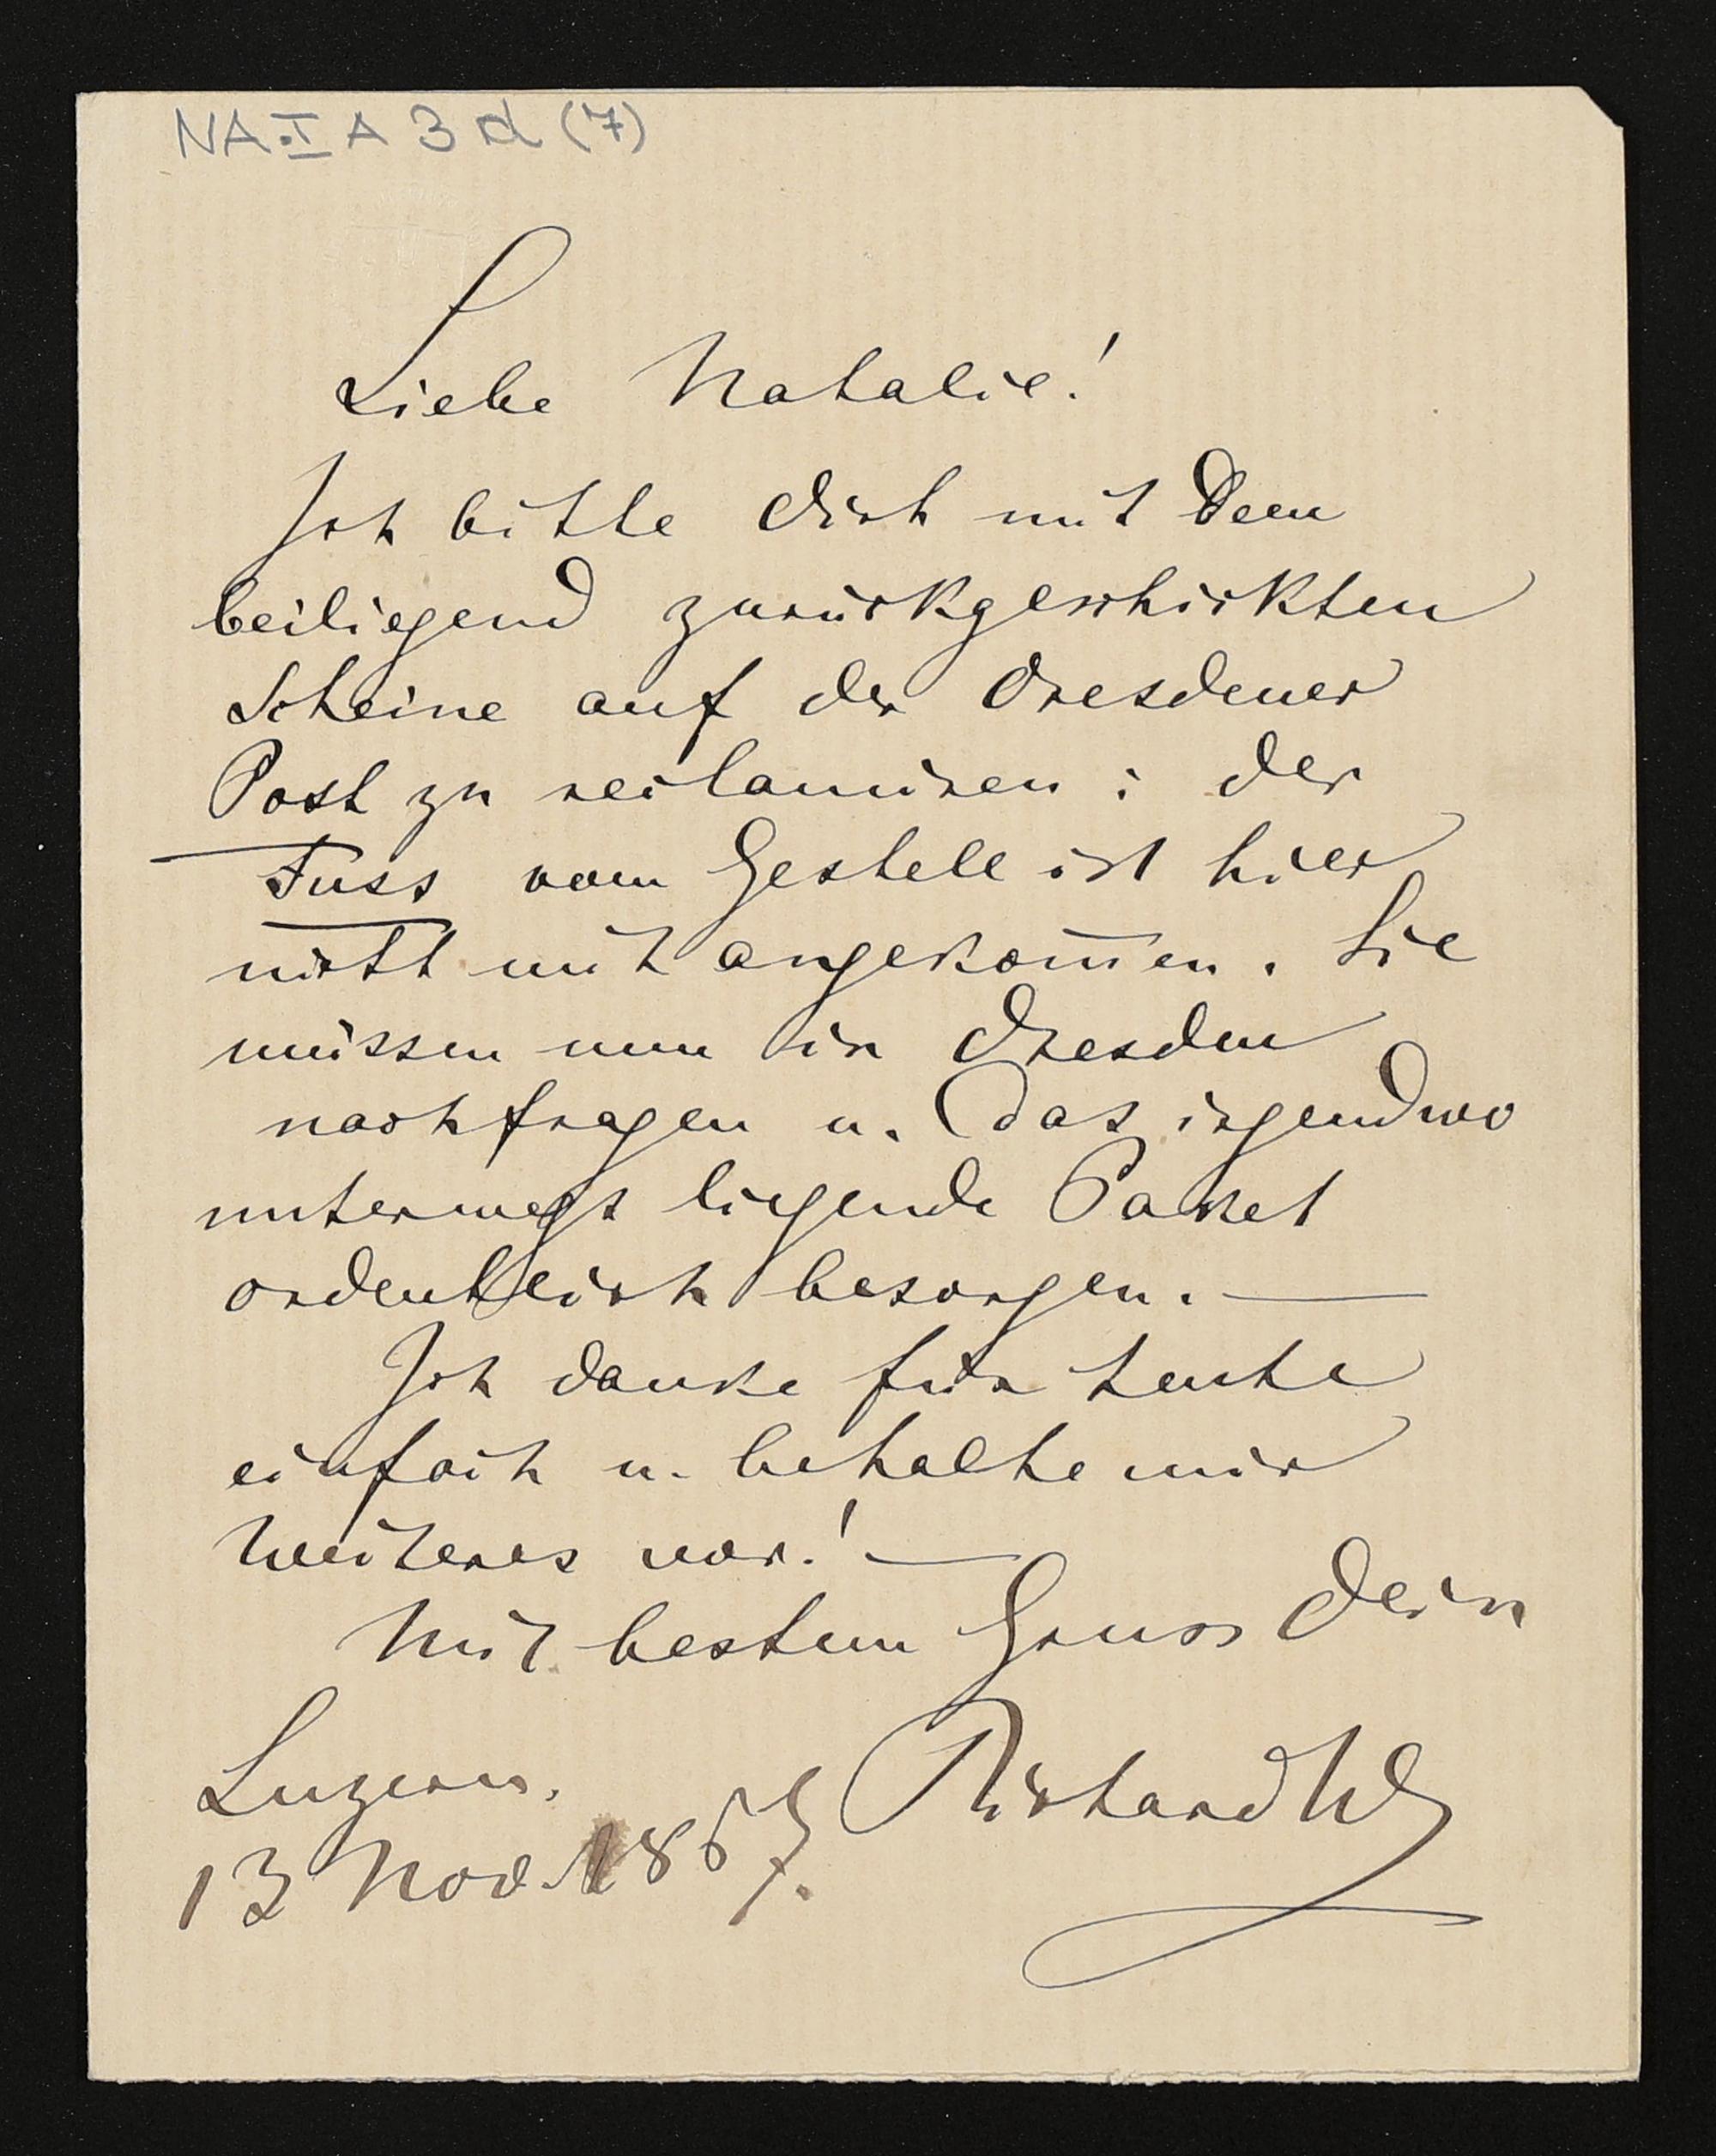 NA.I A 3 d (7)
Liebe Natalie!
Ich bitte dich mit dem
beiliegend zurückgeschickten
Scheine auf der Dresdener
Post zu reclamiren: der
Fuss vom Gestell ist hier
nicht mit angekom̅en. Sie
müssen nun in Dresden
nachfragen u. das irgendwo
unterwegs liegende Packet
ordentlich besorgen. —
Ich danke für heute
einfach u. behalte mir
Weiteres vor! —
Mit bestem Gruss Dein
Luzern. RichardW
13 Nov. 1867.